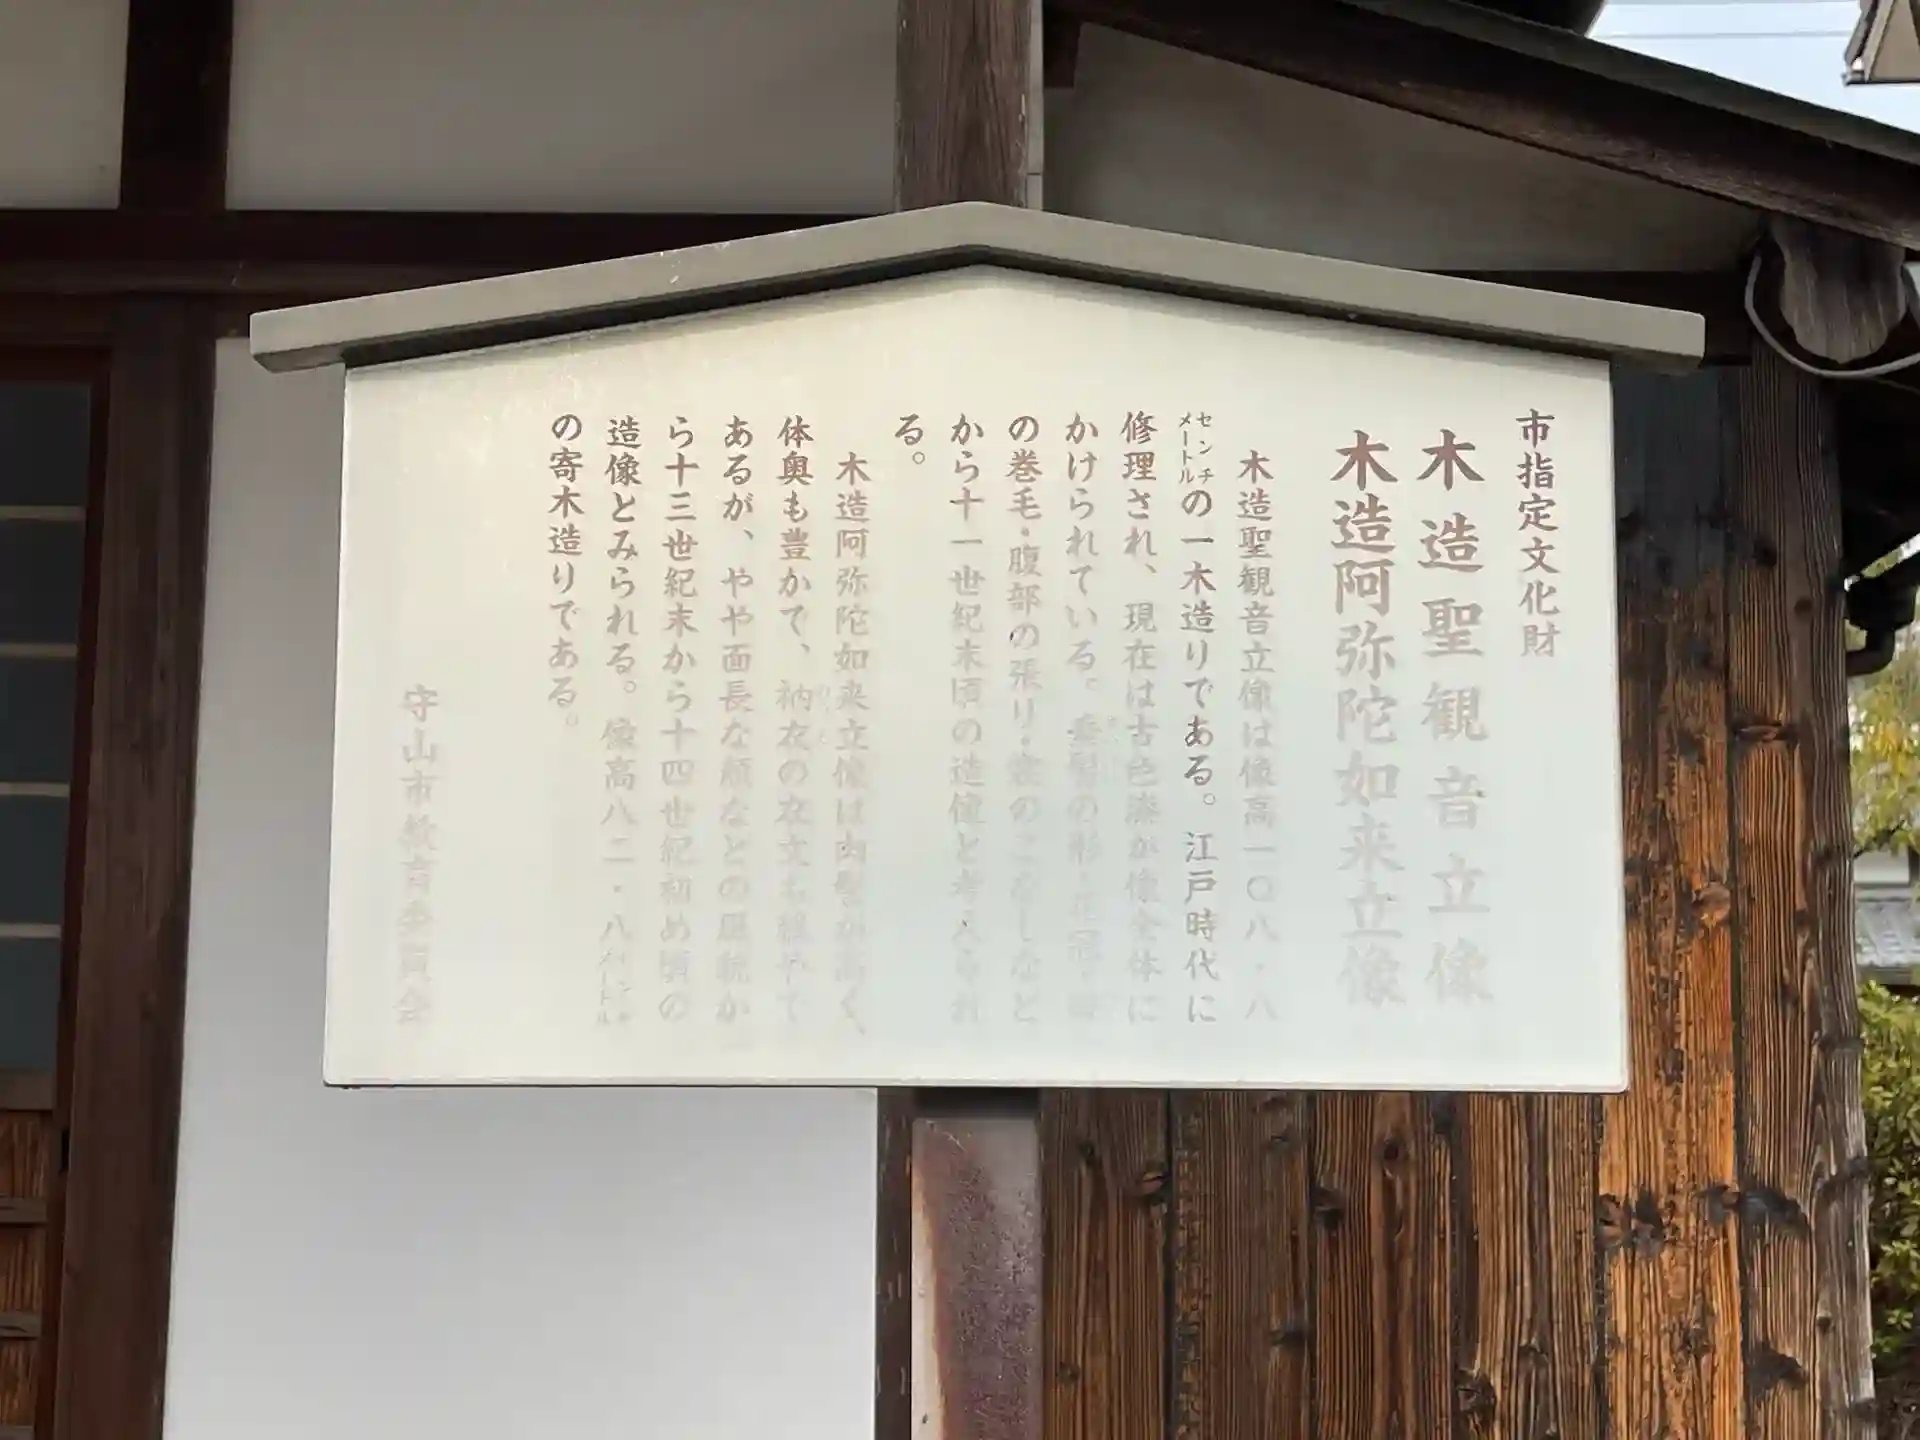 市指定文化財
木造聖観音立像
木造阿弥陀如来立像
木造聖観音立像は像高一〇八・八
センチメートルの一木造りである。江戸時代に
修理され、現在は古色漆が像全体に
かけられている。垂髻の形・花冠・
の巻毛・腹部の張り・裳のこなしなど
から十一世紀末頃の造像と考えられ
る。
木造阿弥陀如来立像は肉髻が高く、
体奥も豊かで、衲衣の衣文も緩やで
あるが、やや面長な顔などの風貌か
ら十三世紀末から十四世紀初め頃の
造像とみられる。像高八二・八センチメートル
の寄木造りである。
守山市教育委員会